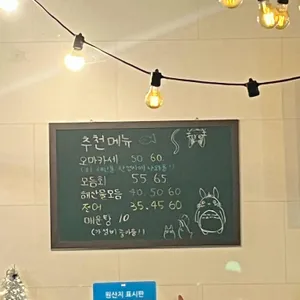 추천메뉴
오마카세 50 60
모듬회 55 65
해산물모듬 40. 50 60
35. 45 60
매운탕 10
원산지 표시판